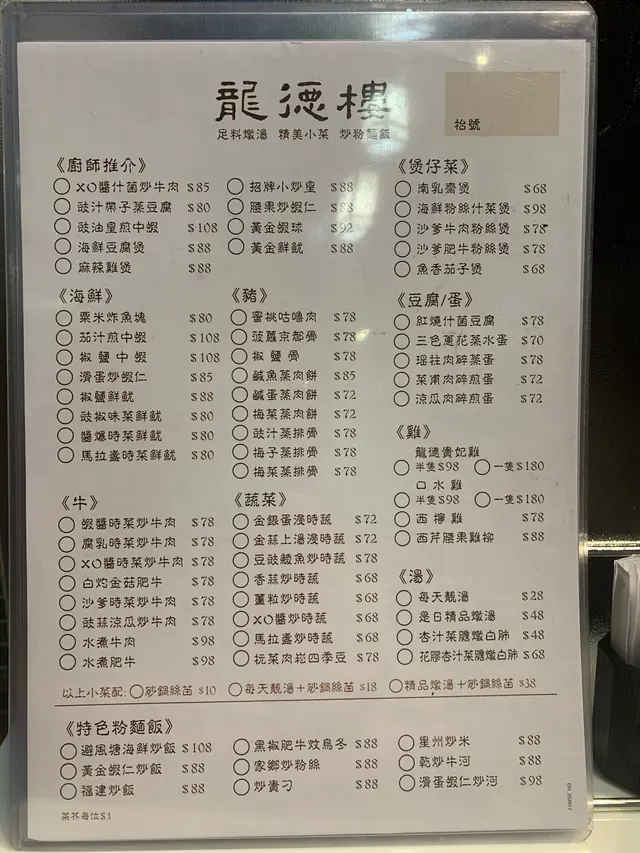 龍德樓
足料燉湯 精美小菜 炒粉麵飯
枱號
《廚師推介》
XO醬什菌炒牛肉 $85
豉汁帶子蒸豆腐 $80
豉油皇煎中蝦 $108
海鮮豆腐煲 $88
麻辣雞煲 $88
招牌小炒皇 $88
腰果炒蝦仁 $88
黃金蝦球 $92
黃金鮮魷 $88
《煲仔菜》
南乳齋煲 $68
海鮮粉絲什菜煲 $98
沙爹牛肉粉絲煲 $78
沙爹肥牛粉絲煲 $78
魚香茄子煲 $68
《海鮮》
粟米炸魚塊 $80
茄汁煎中蝦 $108
椒鹽中蝦 $108
滑蛋炒蝦仁 $85
椒鹽鮮魷 $88
豉椒味菜鮮魷 $80
醬爆時菜鮮魷 $80
馬拉盞時菜鮮魷 $80
《豬》
蜜桃咕嚕肉 $78
菠蘿京都骨 $78
椒鹽骨 $78
鹹魚蒸肉餅 $85
鹹蛋蒸肉餅 $72
梅菜蒸肉餅 $72
豉汁蒸排骨 $78
梅子蒸排骨 $78
梅菜蒸排骨 $78
《豆腐/蛋》
紅燒什菌豆腐 $78
三色蔥花蒸水蛋 $70
瑤柱肉碎蒸蛋 $78
菜甫肉碎煎蛋 $72
涼瓜肉碎煎蛋 $72
《雞》
龍德貴妃雞
半隻$98 一隻$180
口水雞
半隻$98 一隻$180
西檸雞 $78
西芹腰果雞柳 $88
《牛》
蝦醬時菜炒牛肉 $78
腐乳時菜炒牛肉 $78
XO醬時菜炒牛肉 $78
白灼金菇肥牛 $78
沙爹時菜炒牛肉 $78
豉蒜涼瓜炒牛肉 $78
水煮牛肉 $98
水煮肥牛 $98
《蔬菜》
金銀蛋浸時蔬 $72
金蒜上湯浸時蔬 $72
豆豉鯪魚炒時蔬 $78
香蒜炒時蔬 $68
薑粒炒時蔬 $68
XO醬炒時蔬 $68
馬拉盞炒時蔬 $68
杬菜肉崧四季豆 $78
《湯》
每天靚湯 $28
是日精品燉湯 $48
杏汁菜膽燉白肺 $48
花膠杏汁菜膽燉白肺 $68
以上小菜配: 砂鍋絲苗 $10 每天靚湯+砂鍋絲苗 $18 精品燉湯+砂鍋絲苗 $38
《特色粉麵飯》
避風塘海鮮炒飯 $108
黃金蝦仁炒飯 $88
福建炒飯 $88
黑椒肥牛炆烏冬 $88
家鄉炒粉絲 $88
炒貴刁 $88
星州炒米 $88
乾炒牛河 $88
滑蛋蝦仁炒河 $98
茶芥每位$3